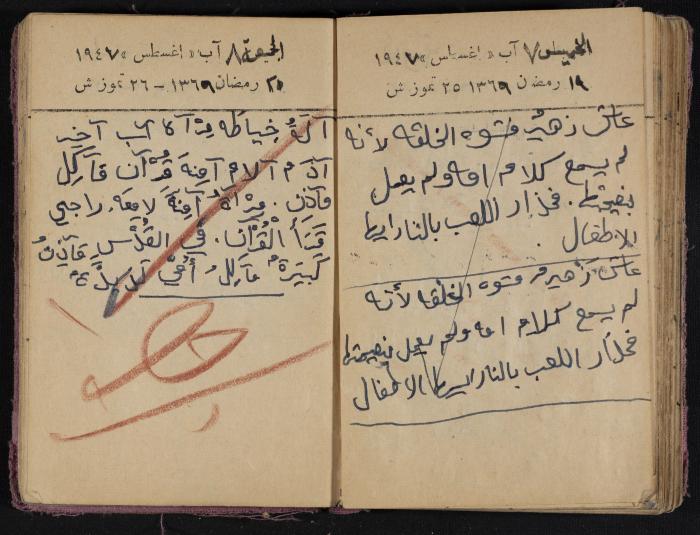 الخميس ٧ آب « اغسطس » ١٩٤٧
١٩ رمضان ١٣٦٦ ٢٥ تموز ش
عاش زهير مشوه الخلقه لأنه
لم يسمع كلام امه ولم يعمل
بنصيحتها. فحذار اللعب بالنار ايها
الاطفال.
عاش زهير مشوه الخلقه لأنه
لم يسمع كلام امه ولم يعمل بنصيحتها
فحذار اللعب بالنار ايها الاطفال
الجمعة ٨ آب « اغسطس » ١٩٤٧
٢٠ رمضان ١٣٦٦ - ٢٦ تموز ش
آلة خياطه مرآة آب آخر
آدم آلام آمنة قرآن مآكل
مآذن. مرآة آمنة لامعة. راجي
قرأ القرآن. في القدس مآذن
كبيرة مآكل